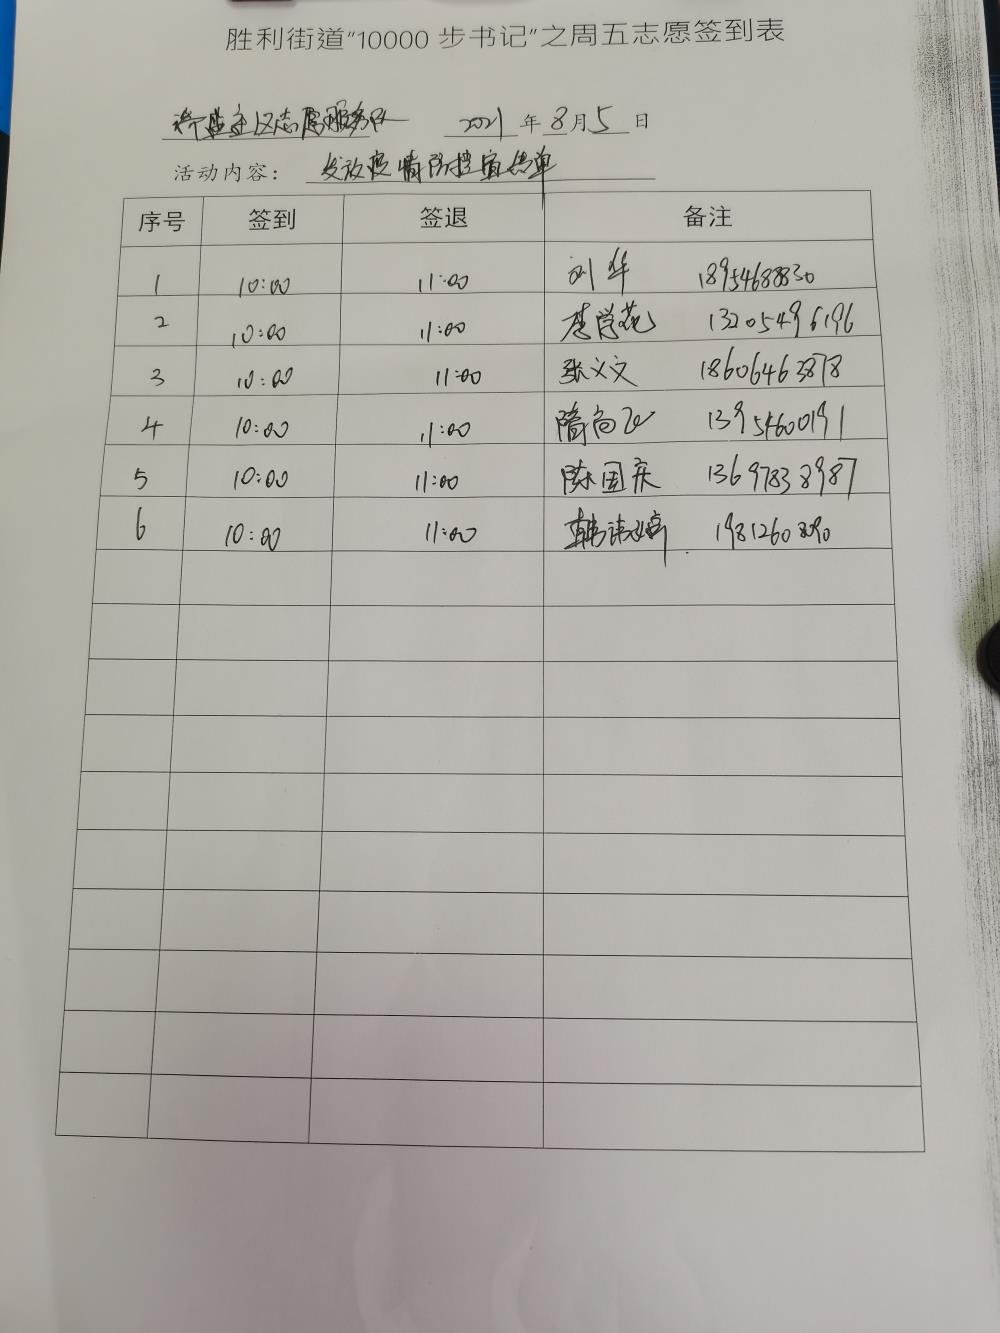 胜利街道“10000 步书记”之周五志愿签到表
社区志愿服务队 2021 年 8 月 5 日
活动内容： 发放疫情防控宣传单
序号 签到 签退 备注
1 10:00 11:00 刘华 18954688830
2 10:00 11:00 李学花 13205496196
3 10:00 11:00 张义文 18606463878
4 10:00 11:00 隋尚飞 13954600191
5 10:00 11:00 陈国庆 13697838987
6 10:00 11:00 韩 1981260